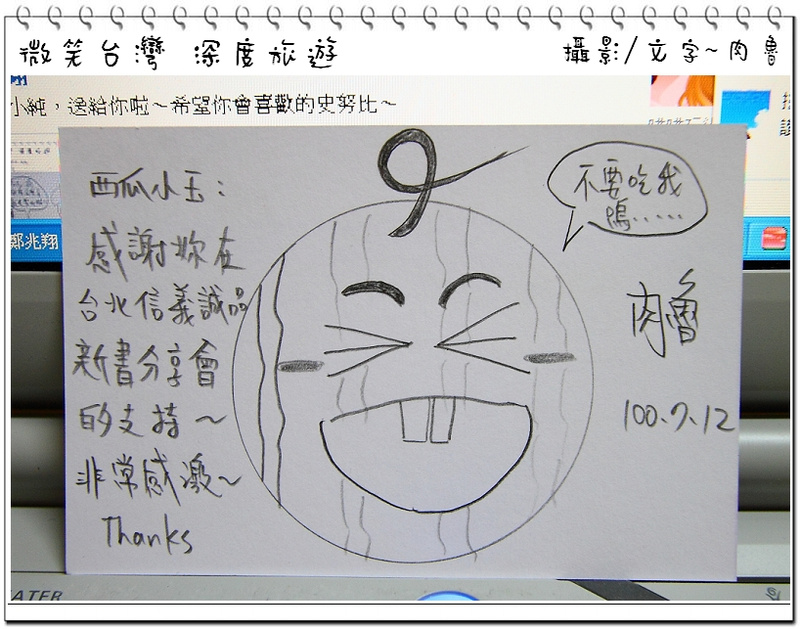 微笑台灣 深度旅遊
攝影/文字~肉魯
小純，送給你啦～希望你會喜歡的史努比～
鄭兆翔
西瓜小玉：
感謝妳在
台北信義誠品
新書分享會
的支持～
非常感激～
Thanks
不要吃我
嗚......
肉魯
100.7.12
ATER